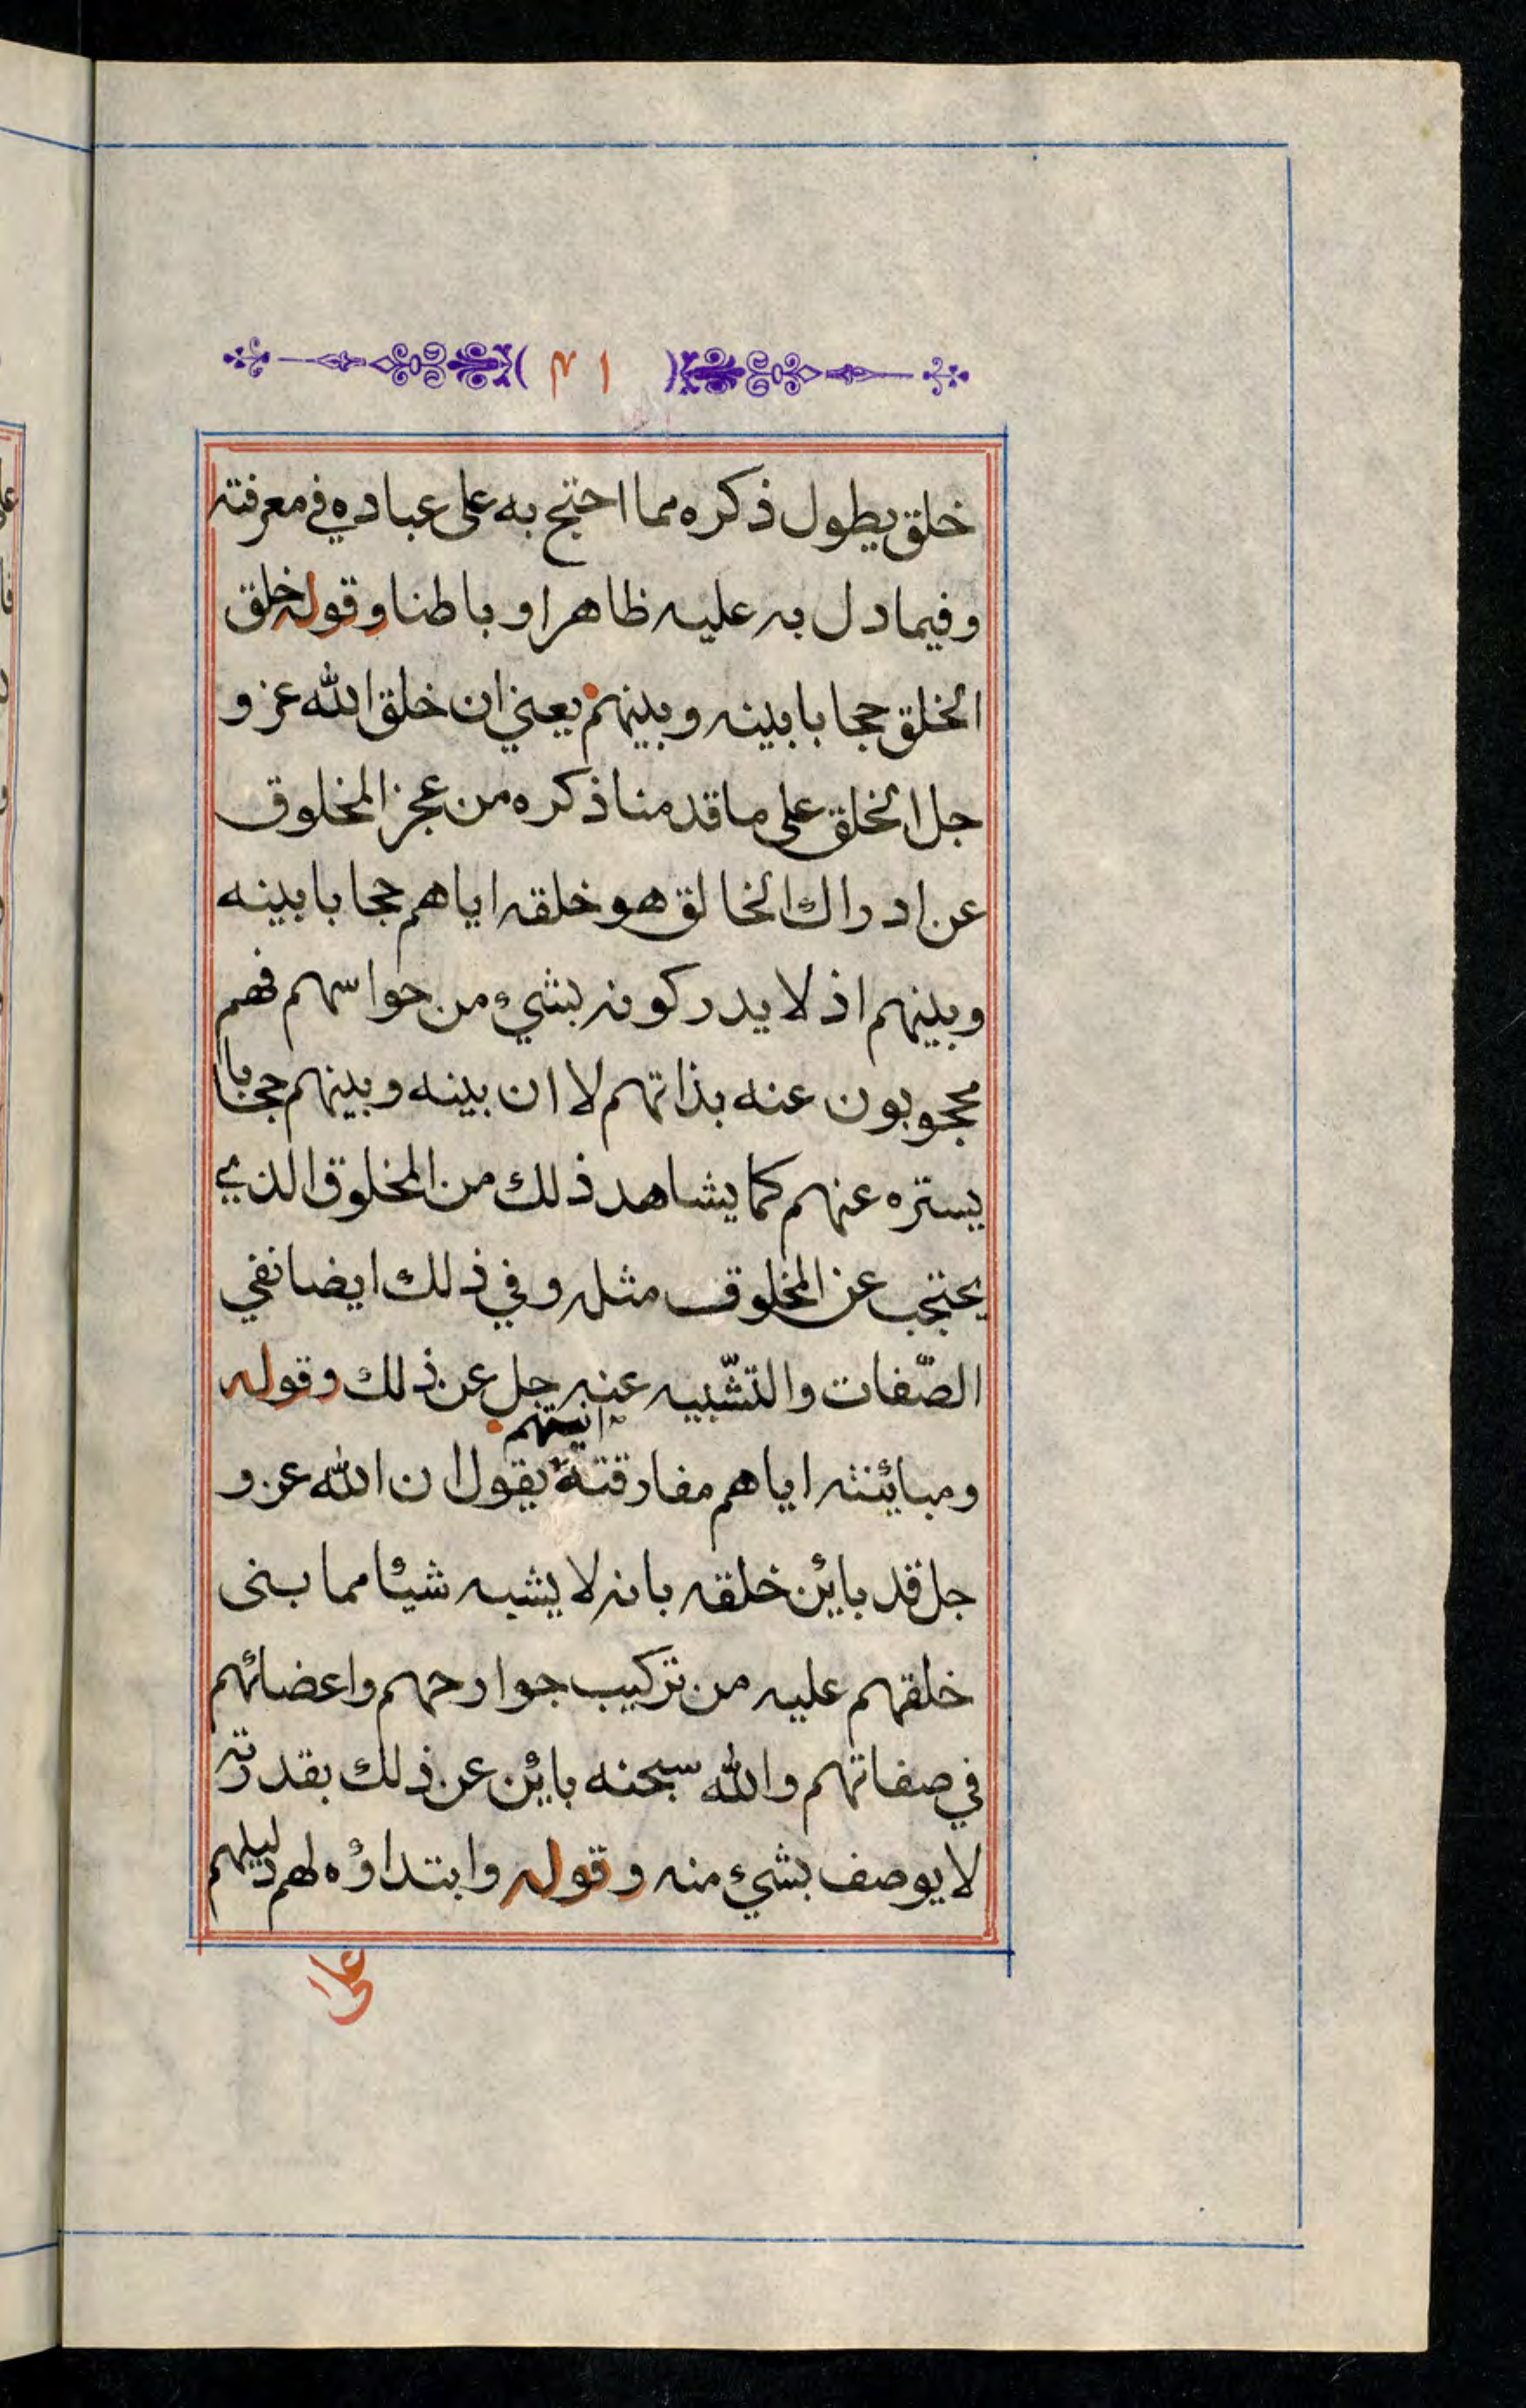 ١٣
خلق يطول ذكره مما احتج به على عباده في معرفته
وفيما دل به عليه ظاهرا وباطنا وقوله خلق
الخلق حجابا بينه وبينهم يعني ان خلق الله عز و
جل الخلق على ما قدمنا ذكره من عجز المخلوق
عن ادراك الخالق هو خلقه اياهم حجابا بينه
وبينهم اذ لا يدركونه بشيء من حواسهم فهم
محجوبون عنه بذاتهم لا ان بينه وبينهم حجابا
يستره عنهم كما يشاهد ذلك من المخلوق الذي
يحتجب عن المخلوق مثله وفي ذلك ايضا نفي
الصّفات والتشّبيه عنه جل عن ذلك وقوله
ومبائنته اياهم مفارقته انيتهم يقول ان الله عز و
جل قد بائن خلقه بانه لا يشبه شيئا مما بنى
خلقهم عليه من تركيب جوارحهم واعضائهم
في صفاتهم والله سبحنه بائن عن ذلك بقدرته
لا يوصف بشيء منه وقوله وابتداؤه لهم دليلهم
على